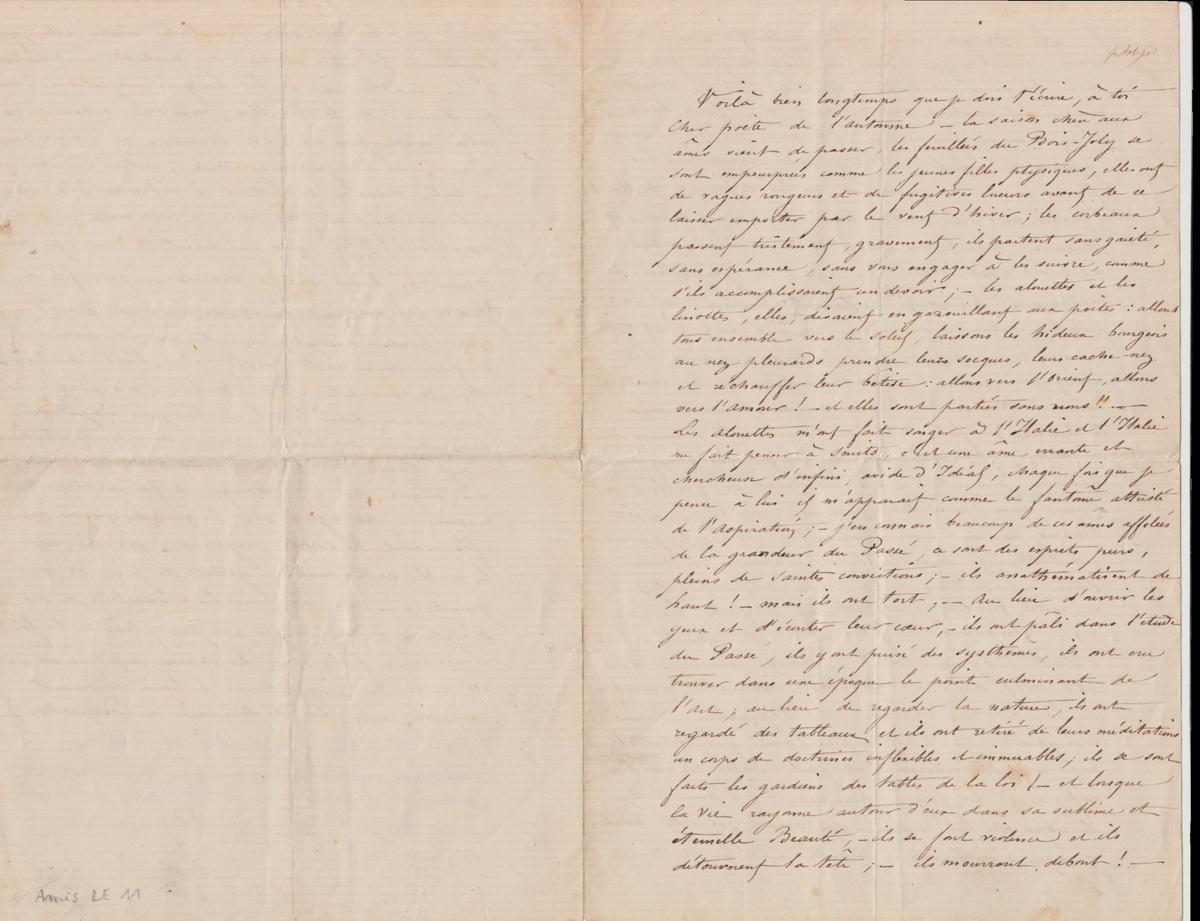 Voilà bien longtemps que je dois t'écrire, à toi
cher poète de l'automne – la saison chère aux
âmes vient de passer, les feuillées du Bois-Joly se
sont empourprées comme les jeunes filles physiques, elles ont
de vagues rougeurs et de fugitives lueurs avant de se
laisser emporter par le vent d'hiver ; les corbeaux
passent tristement, gravement, ils partent sans gaieté,
sans espérance, sans vous engager à les suivre, comme
s'ils accomplissaient un devoir ; – les alouettes et les
linottes, elles, disaient en gazouillant aux poètes : allons
tous ensemble vers le soleil, laissons les hideux bourgeois
au nez pleurards prendre leurs socques, leurs cache-nez
et réchauffer leur bêtise : allons vers l'Orient, allons
vers l'amour ! – et elles sont parties sans nous !! –
Les alouettes m'ont fait songer à l'Italie et l'Italie
me fait penser à Smits, c'est une âme errante et
chercheuse d'infini, avide d'Idéal, chaque fois que je
pense à lui il m'apparait comme le fantôme attristé
de l'Aspiration ; – j'en connais beaucoup de ces âmes affolées
de la grandeur du Passé, ce sont des esprits purs,
pleins de saintes convictions ; – ils anathématisent de
haut ! – mais ils ont tort ; – Au lieu d'ouvrir les
yeux et d'écouter leur cœur, – ils ont pâli dans l'étude
du Passé, ils y ont puisé des systhèmes, ils ont cru
trouver dans une époque le point culminant de
l'art ; au lieu de regarder la nature, ils ont
regardé des tableaux et ils ont retiré de leurs méditations
un corps de doctrines inflexibles et immuables ; ils se sont
faits les gardiens des tables de la loi ! – et lorsque
la vie rayonne autour d'eux dans sa sublime et
éternelle Beauté, – ils se font violence et ils
détournent la tête ; – ils mourront debout ! –
Amis LE 11